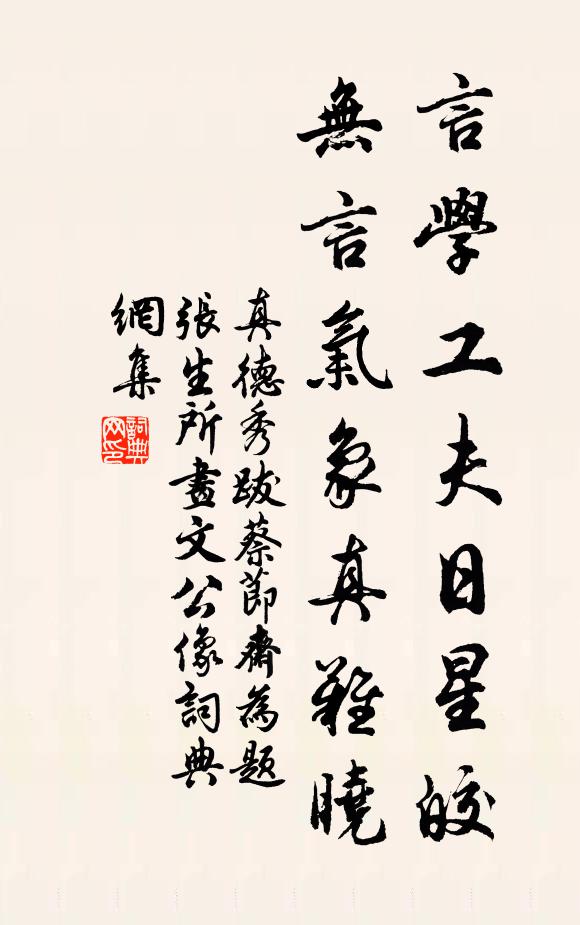 言學工夫日星皎
無言氣象真難曉
真德秀跋蔡節齋為題
張生所畫文公像詞典
網集
詞典
网印